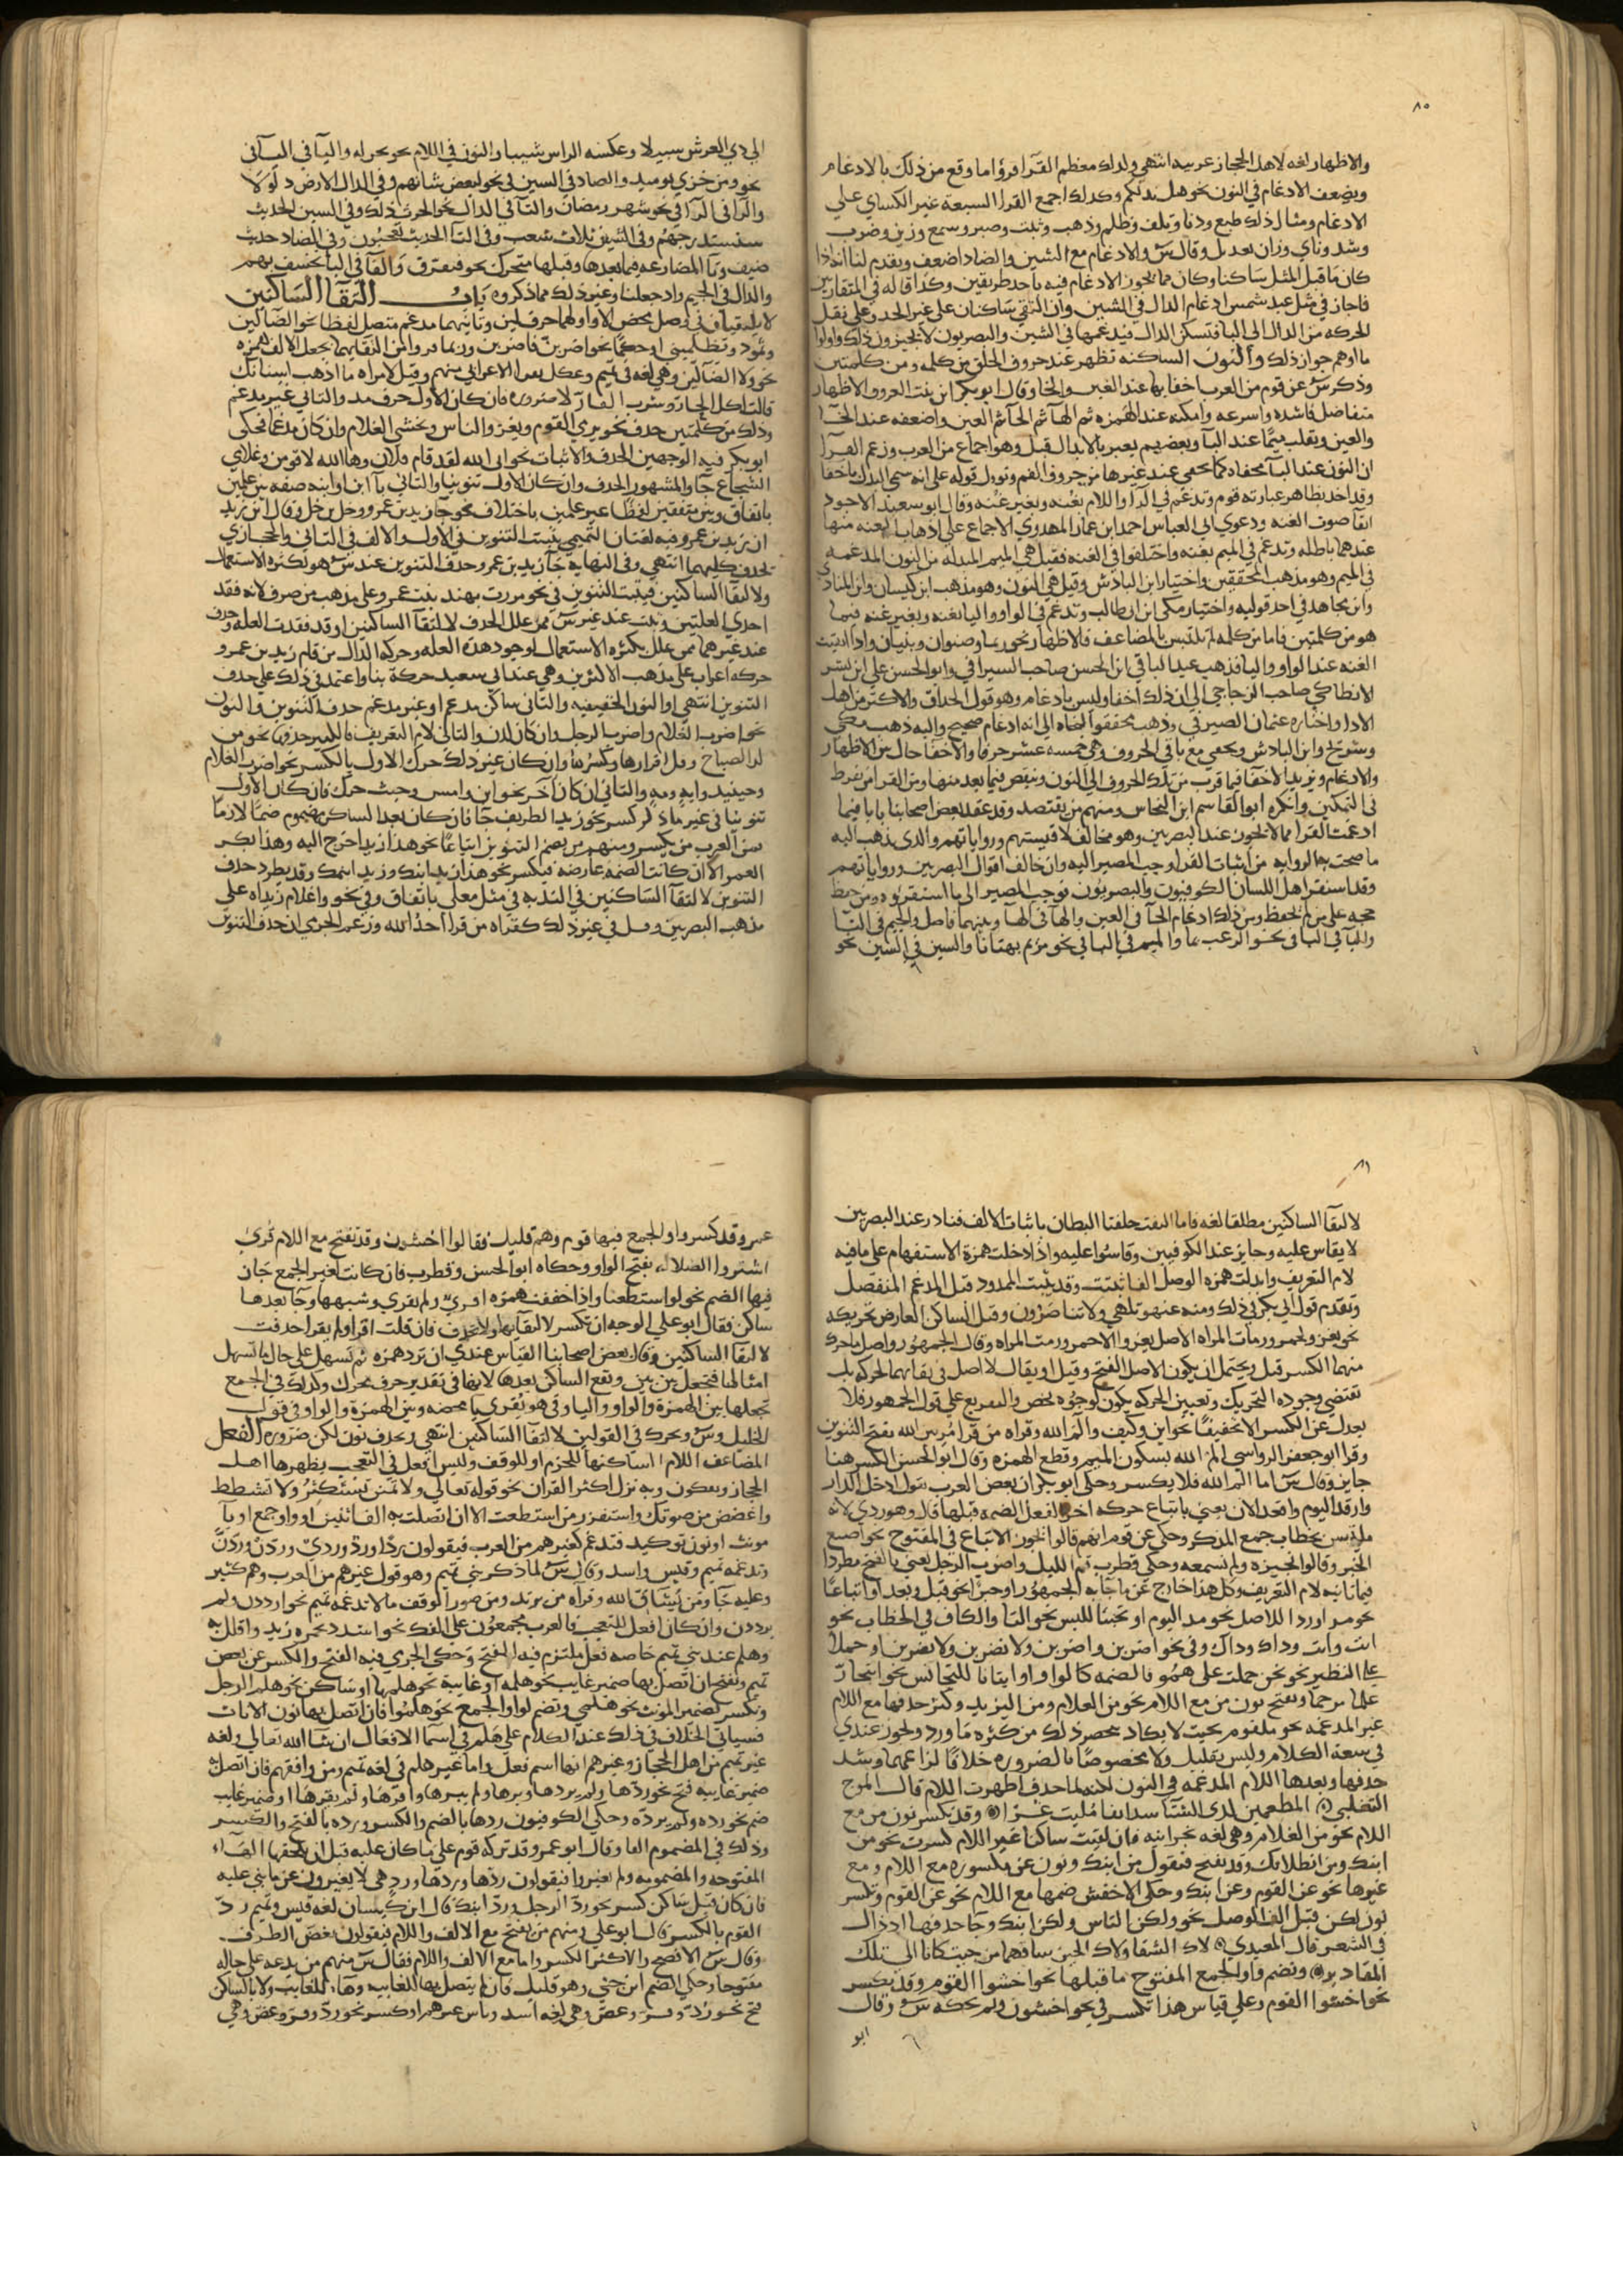 ٨٠
والاظهار لغه لاهل الحجاز عربيه انتهي ولذلك معظم القرا قرؤا ما وقع من ذلك بالادغام
ويضعف الادغام في النون نحو هل ندلكم وكذلك اجمع القرا السبعة غير الكساي علي
الادغام ومثال ذلك طبع ودنا وتلف وظلم وذهب وثبت وصبر وسمع وزين وضرب
وشد وناي وزان بعد بل وقال س والادغام مع الشين والضاد اضعف وتقدم لنا انه اذا
كان ما قبل المثل ساكنا وكان مما يجوز الادغام فيه باحد طريقين وكذا قاله في المتقاربين
فاجاز في مثل عبد شمس ادغام الدال في الشين وان التقي ساكنان علي غير الحد وعلي نقل
الحركه من الدال الي البا فتسكن الدال فيدغمها في الشين والبصريون لا يجيزون ذلك واولوا
ما اوهم جواز ذلك والنون الساكنه تظهر عند حروف الحلق من كلمه ومن كلمتين
وذكر س عن قوم من العرب اخفاها عند الغين والخا وقال ابو بكر ابن بنت العروق الاظهار
متفاضل فاشده واسرعه وامكنه عند الهمزه ثم الها ثم الحا ثم العين واضعفه عند الخا
والغين ويقلب ميما عند البا وبعضهم يعبر بالابدال قبل وهو اجماع من العرب وزعم الفرا
ان النون عند البا مخفاه كما تخفي عند غيرها من حروف الفم وتوول قوله علي انه سمي البدل اخفا
وقد اخد بظاهر عبارته قوم وتدغم في الرا واللام بغنه وبغير غنه وقال ابو سعيد الاجود
ابقا صوت الغنه ودعوي ابي العباس احمد ابن عمار المهدوي الاجماع علي اذهاب الغنه منها
عندهما باطله وتدغم في الميم بغنه واختلفوا في الغنه فقيل هي الميم المبدله من النون المدغمه
في الميم وهو مذهب المحققين واختيار ابن الباذش وقيل هي النون وهو مذهب ابن كيسان وابن المنادي
وابن مجاهد في احد قوليه واختيار مكي ابن ابي طالب وتدغم في الواو واليا بغنه وبغير غنه فيما
هو من كلمتين فاما من كلمه لم تلتبس بالمضاعف فالاظهار نحو زنما وصنوان وبنيان واذا اثبتت
الغنه عند الواو واليا فذهب عبد الباقي ابن الحسن صاحب السيرافي وابو الحسن علي ابن بشر
الانطاكي صاحب الزجاجي الي ان ذلك اخفا وليس بادغام وهو قول الحذاق والاكثر من اهل
الادا واختاره عثمان الصيرفي وذهب محققوا النحاه الي انه ادغام صحيح واليه ذهب مكي
وشريح وابن الباذش وتخفي مع باقي الحروف وهي خمسه عشر حرفا والاخفا حال بين الاظهار
والادغام ويزيد الاخفا فيما قرب من تلك الحروف الي النون وينقص فيما بعد منها ومن القرا من يفرط
في التمكين وانكره ابو القاسم ابن النحاس ومنهم من يقتصد وقد عقد بعض اصحابنا بابا فيما
ادغمت القرا مما لا يجوز عند البصريين وهو مخالف لاقيستهم ورواياتهم والذي يذهب اليه
ما صحت به الروايه من اثبات القرا وجب المصير اليه وان خالف اقوال البصريين ورواياتهم
وقد استقرا هل اللسان الكوفيون والبصريون فوجب المصير الي ما استقروه ومن حفظ
حجه علي من لم يحفظ ومن ذلك ادغام الحا في العين والها في الها وبينهما فاصل والجيم في التا
والبا في البا في نحو الرعب بما والميم في البا في نحو مريم بهتانا والسين في الشين نحو
الي ذي العرش سبيلا وعكسه الراس شيبا والنون في اللام نحو نحن له واليا في اليا في
نحو ومن خزي يوميد والضاد في الشين في نحو لبعض شانهم وفي الدال الارض ذلولا
والرا في الرا في نحو شهر رمضان والثا في الدال نحو الحرث ذلك وفي السين الحديث
سنستدرجهم وفي الشين ثلاث شعب وفي التا الحديث تعجبون وفي الضاد حديث
ضيف وتا المضارعه فيما بعدها وقبلها متحرك نحو فتفرق والفا في البا نخسف بهم
والدال في الجيم واذ جعلنا وغير ذلك مما ذكروه باب التقا الساكنين
لا يلتقيان في وصل محض الا واولهما حرف لين وثانيهما مدغم متصل لفظا نحو الضالين
وتمود وتظلميني او حكما نحو اضربن فاضربن وربما فر من التقايهما بجعل الالف همزه
نحو ولا الضالين وهي لغه في تميم وعكل بعض الاعرابي منهم وقيل لامراه ما اذهب اسنانك
قالت اكل الحار وشرب القار لا ضروره فان كان الاول حرف مد والثاني غير مدغم
وذلك من كلمتين حذف نحو يرمي القوم ويغزوا الناس ويخشي الغلام وان كان مدغما فحكي
ابو بكر فيه الوجهين الحذف والاثبات نحو اي الله لقد قام فلان وها الله لاقومن وغلاي
الشجاع جا والمشهور الحذف وان كان الاول تنوينا والثاني با ابن او ابنه صفه بين علمين
باتفاق وبين متفقين لفظا غير علمين باختلاف نحو جا زيد بن عمرو ورجل بن رجل وقال ابن زيد
ان زيد بن عمرو فيه لغتان التميمي يثبت التنوين في الاول والالف في الثاني والحجازي
يحذف كليهما انتهي وفي النهايه جا زيد بن عمرو حذف التنوين عند س هو لكثره الاستعمال
ولالتقا الساكنين فيثبت التنوين في نحو مررت بهند بنت عمرو علي مذهب من صرف لانه فقد
احدي العلتين ويثبت عند غير س ممن علل الحذف لالتقا الساكنين او قد فقدت العله وحذف
عند غيرهما ممن علل بكثره الاستعمال لوجود هذه العله وحركه الدال من قام زيد بن عمرو
حركه اعراب علي مذهب الاكثرين وهي عند ابي سعيد حركة بنا واعتمد في ذلك علي حذف
التنوين انتهي او النون الخفيفه والثاني ساكن مدغم او غير مدغم حذف التنوين والنون
نحو اضرب الغلام واضرب الرجل وان كان لدن والثاني لام التعريف فالكثير حذفها نحو من
لد الصباح وقل اقرارها وكسرها وان كان غير ذلك حرك الاول بالكسر نحو اضرب الغلام
وحينيد وايه ومه والثاني ان كان اخر نحو اين وامس وحيث حرك فان كان الاول
تنوينا في غير ما ذكر كسر نحو زيد الطريف جا فان كان بعد الساكن مضموم ضما لازما
من العرب من يكسر ومنهم من يضم التنوين اتباعا نحو هذا زيد اخرج اليه وهذا بكر
العمر الا ان كانت الضمه عارضه فيكسر نحو هذا زيد ابنك وزيد ابنمك وقد يطرد حذف
التنوين لالتقا الساكنين في الندبه في مثل معلي باتفاق وفي نحو واغلام زيداه علي
مذهب البصريين وقل في غير ذلك كقراه من قرا احد الله وزعم الجرمي ان حذف التنوين
٨١
لالتقا الساكنين مطلقا لغه فاما التقت حلقتا البطان باثبات الالف فنادر عند البصريين
لا يقاس عليه وجايز عند الكوفيين وقاسوا عليه واذا دخلت همزة الاستفهام علي ما فيه
لام التعريف وابدلت همزه الوصل الفا ثبتت وقد يثبت الممدود قبل المدغم المنفصل
وتقدم قول ابي بكر في ذلك ومنه عنهو تلهي ولا تناصرون وقبل الساكن العارض تحريكه
نحو يغزو لحمر ورمات المراه الاصل يغزوا الاحمر ورمت المراه وقال الجمهور واصل ما حرك
منهما الكسر قيل ويحتمل ان يكون الاصل الفتح وقيل او يقال لا اصل في بقايهما الحركه بل
تقتضي وجوده التحريك وتعيين الحركه يكون لوجوه تخص والتفريع علي قول الجمهور فلا
يعدل عن الكسر الا تخفيفا نحو اين وكيف والم الله وقراه من قرا مريبن الله بفتح التنوين
وقرا ابو جعفر الرواسي الم الله بسكون الميم وقطع الهمزه وقال ابو الحسن الكسر هنا
جايز وقال س اما الم الله فلا يكسر وحكي ابو بكر ان بعض العرب يقول ادخل الدار
وارقد اليوم واقعد الان يعني باتباع حركه اخر الفعل الضمه قبلها قال وهو ردي لانه
ملبس بخطاب جمع المذكر وحكي عن قوم انهم قالوا يجوز الاتباع في المفتوح نحو اصنع
الخير وقالوا لخيزه ولم نسمعه وحكي قطرب قم الليل واضرب الرجل يعني بالفتح مطردا
فيما ثانيه لام التعريف وكل هذا خارج عن ما جا به الجمهور او جبرا نحو قبل وبعد او اتباعا
نحو مد او ردا للاصل نحو مد اليوم او تجنبا للبس نحو التا والكاف في الخطاب نحو
انت وانت وداك وداك وفي نحو اضربن واضربن ولا تضربن ولا تضربن او حملا
علي النظير نحو نحن حملت علي همو فالضمه كالواو او ايثارا للتجانس نحو اسحار
علما مرخما ويفتح نون من مع اللام نحو من الغلام ومن اليزيد ويكثر حذفها مع اللام
غير المدغمه نحو ملقوم بحيث لا يكاد ينحصر ذلك من كثره ما ورد ويجوز عندي
في سعة الكلام وليس بقليل ولا مخصوصا بالضروره خلافا لزاعمهما وشد
حذفها وبعدها اللام المدغمه في النون لكنه لما حذف اظهرت اللام قال المرج
التغلبي المطعمين لدي الشتا سدايفا مليت غرا وقد يكسر نون من مع
اللام نحو من الغلام وهي لغه نجرانيه فان لقيت ساكنا غير اللام كسرت نحو من
ابنك ومن انطلاقك وقد يفتح فتقول من ابنك ونون عن مكسوره مع اللام ومع
غيرها نحو عن القوم وعن ابنك وحكي الاخفش ضمها مع اللام نحو عن القوم وتكسر
نون لكن قبل الف الوصل نحو ولكن الناس ولكن ابنك وجا حذفها اذ ذاك
في الشعر قال المعيدي لاك الشقا ولاك الحين ساقهما من حيث كانا الي تلك
المقادير وتضم واو الجمع المفتوح ما قبلها نحو اخشوا القوم وقد يكسر
نحو اخشوا القوم وعلي قياس هذا تكسر في نحو اخشون ولم يحكه س وقال
ابو
عمرو قد كسروا واو الجمع فيها قوم وهم قليل فقالوا اخشون وقد تفتح مع اللام قري
اشتروا الضلاله بفتح الواو وحكاه ابو الحسن وقطرب فان كانت لغير الجمع جاز
فيها الضم نحو لو استطعنا واذا خففت همزه اقري ولم يقري وشبهها وجا بعدها
ساكن فقال ابو علي الوجه ان تكسر لالتقايهما ولا تحذف فان قلت اقرا ولم يقرا حذفت
لالتقا الساكنين وقال بعض اصحابنا القياس عندي ان ترد همزه ثم تسهل علي حال ما تسهل
امثالها فتجعل بين بين وتقع الساكن بعدها لانها في تقدير حرف محرك وكذلك في الجمع
تجعلها بين الهمزة والواو واليا وفي هو يقري يا محضه وبين الهمزة والواو في قول
الخليل وس ويحرك في القولين لالتقا الساكنين انتهي ويحذف نون لكن ضروره الفعل
المضاعف اللام الساكنها للجزم او للوقف وليس افعل في التعجب يظهرها اهل
الحجاز ويفكون وبه نزل اكثر القران نحو قوله تعالي ولا تمنن تستكثر ولا تشطط
واغضض من صوتك واستفزز من استطعت الا ان اتصلت به الف اثنين او واو جمع او يا
مونث او نون توكيد فتدغم كغيرهم من العرب فيقولون ردا وردوا وردي وردن وردن
وتدغمه تميم وقيس واسد وقال س لما ذكر بني تميم وهو قول غيرهم من العرب وهم كثير
وعليه جا ومن يشاق الله وقراه من يرتد ومن صور الوقف ما لا تدغمه تميم نحو ارددن ولم
يرددن وان كان افعل للتعجب فالعرب مجمعون علي الفك نحو اشدد بحمره زيد واقلل به
وهلم عند بني تميم خاصه فعل ملتزم فيه الفتح وحكي الجرمي فيه الفتح والكسر عن بعض
تميم وتفتح ان اتصل بها ضمير غايب نحو هلمه او غايبة نحو هلمها او ساكن نحو هلم الرجل
وتكسر لضمير المونث نحو هلمي وتضم لواو الجمع نحو هلموا فان اتصل بها نون الاناث
فسياتي الخلاف في ذلك عند الكلام علي هلم في اسما الافعال ان شا الله تعالي ولغه
غير تميم من اهل الحجاز وغيرهم انها اسم فعل واما غير هلم في لغه تميم ومن وافقهم فان اتصل به
ضمير غايبه فتح نحو ردها ولم يردها وبرها ولم يبرها واقرها ولم يقرها او ضمير غايب
ضم نحو رده ولم يرده وحكي الكوفيون ردها بالضم والكسر ورده بالفتح والكسر
وذلك في المضموم الفا وقال ابو عمرو قد تركه قوم علي ما كان عليه قبل ان يلحقها الهاء
المفتوحه والمضمومه ولم يغيروا فيقولون ردها وردها ورد هي لا يغيرون عن ما بني عليه
فان كان قبل ساكن كسر نحو رد الرجل ورد ابنك قال ابن كيسان لغه قيس وتميم رد
القوم بالكسر قال ابو علي ومنهم من يفتح مع الالف واللام فيقولون بغض الطرف
وقال س الافصح والاكثر الكسر واما مع الالف واللام فقال س منهم من يدعه علي حاله
مفتوحا وحكي الضم ابن جني وهو قليل فان لم يتصل بها للغايبه وها للغايب ولا بالساكن
فتح نحو رد وفر وعض وهي لغه اسد وناس غيرهم او كسر نحو رد وفر وعض وهي